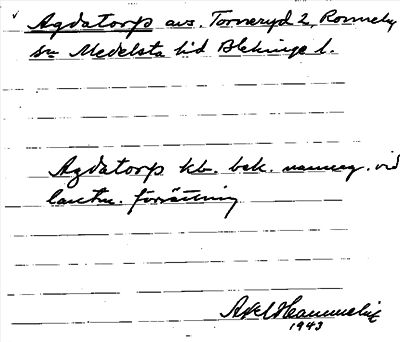 Agdatorp avs. Torneryd 2, Ronneby
sn Medelsta hd Blekinge l.
Agdatorp kb. bek. namng. vid
lantm. förrättning
Axel Hammelin
1943